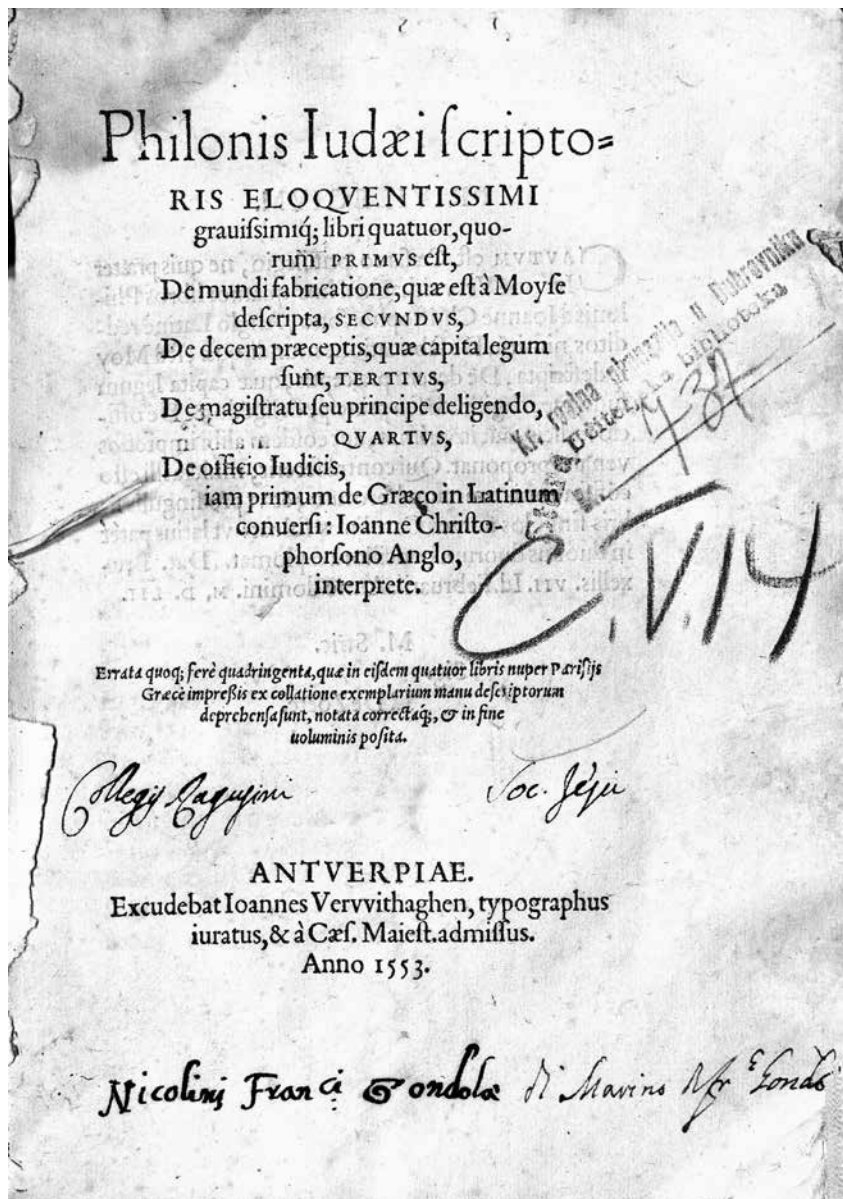 Philonis Iudæi ſcripto=
RIS ELOQVENTISSIMI
grauiſsimiq́; libri quatuor, quo-
rum PRIMVS eſt,
De mundi fabricatione, quæ eſt à Moyſe
deſcripta, SECVNDVS,
De decem præceptis, quæ capita legum
ſunt, TERTIVS,
De magiſtratu ſeu principe deligendo,
QVARTVS,
De officio Iudicis,
iam primum de Græco in Latinum
conuerſi: Ioanne Chriſto-
phorſono Anglo,
interprete.
Kr. realna gimnazija u Dubrovniku
biblioteka
737
C.V.14
Errata quoq; ferè quadringenta, quæ in eiſdem quatuor libris nuper Pariſijs
Græcè impreßis ex collatione exemplarium manu deſcriptorum
deprehenſa ſunt, notata correctaq́;, & in fine
uoluminis poſita.
Collegij Ragusini Soc. Jesu
ANTVERPIAE.
Excudebat Ioannes Vervvithaghen, typographus
iuratus, & à Cæſ. Maieſt. admiſſus.
Anno 1553.
Nicolinj Franci Gondolæ di Marino